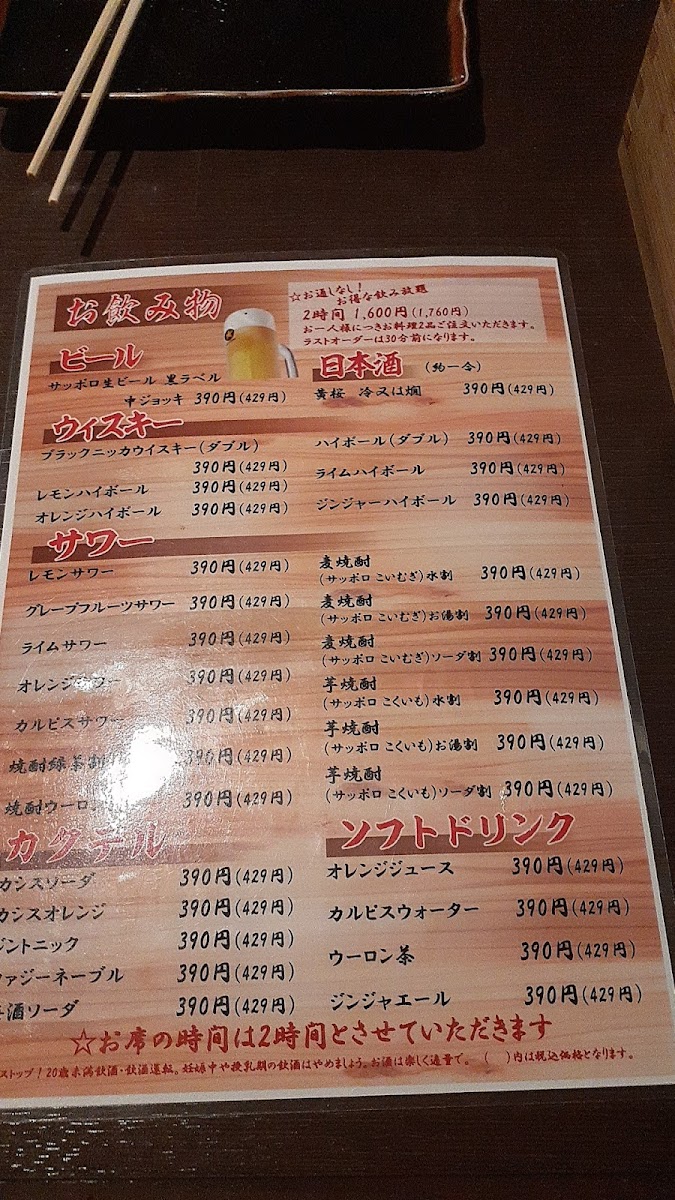 お飲み物
☆お通しなし!
お得な飲み放題
2時間 1,600円(1,760円)
お一人様につきお料理2品ご注文いただきます。
ラストオーダーは30分前になります。
ビール
サッポロ生ビール 黒ラベル
中ジョッキ 390円(429円)
日本酒 (約一合)
黄桜 冷又は燗 390円(429円)
ウィスキー
ブラックニッカウイスキー(ダブル)
390円(429円)
レモンハイボール 390円(429円)
オレンジハイボール 390円(429円)
ハイボール(ダブル) 390円(429円)
ライムハイボール 390円(429円)
ジンジャーハイボール 390円(429円)
サワー
レモンサワー 390円(429円)
グレープフルーツサワー 390円(429円)
ライムサワー 390円(429円)
オレンジサワー 390円(429円)
カルピスサワー 390円(429円)
焼酎緑茶割 390円(429円)
焼酎ウーロ 390円(429円)
麦焼酎
(サッポロ こいむぎ)水割 390円(429円)
麦焼酎
(サッポロ こいむぎ)お湯割 390円(429円)
麦焼酎
(サッポロ こいむぎ)ソーダ割 390円(429円)
芋焼酎
(サッポロ こくいも)水割 390円(429円)
芋焼酎
(サッポロ こくいも)お湯割 390円(429円)
芋焼酎
(サッポロ こくいも)ソーダ割 390円(429円)
カクテル
カシスソーダ 390円(429円)
カシスオレンジ 390円(429円)
ジントニック 390円(429円)
ファジーネーブル 390円(429円)
酒ソーダ 390円(429円)
ソフトドリンク
オレンジジュース 390円(429円)
カルピスウォーター 390円(429円)
ウーロン茶 390円(429円)
ジンジャエール 390円(429円)
☆お席の時間は2時間とさせていただきます
ストップ!20歳未満飲酒・飲酒運転。妊娠中や授乳期の飲酒はやめましょう。お酒は楽しく適量で。 ( )内は税込価格となります。